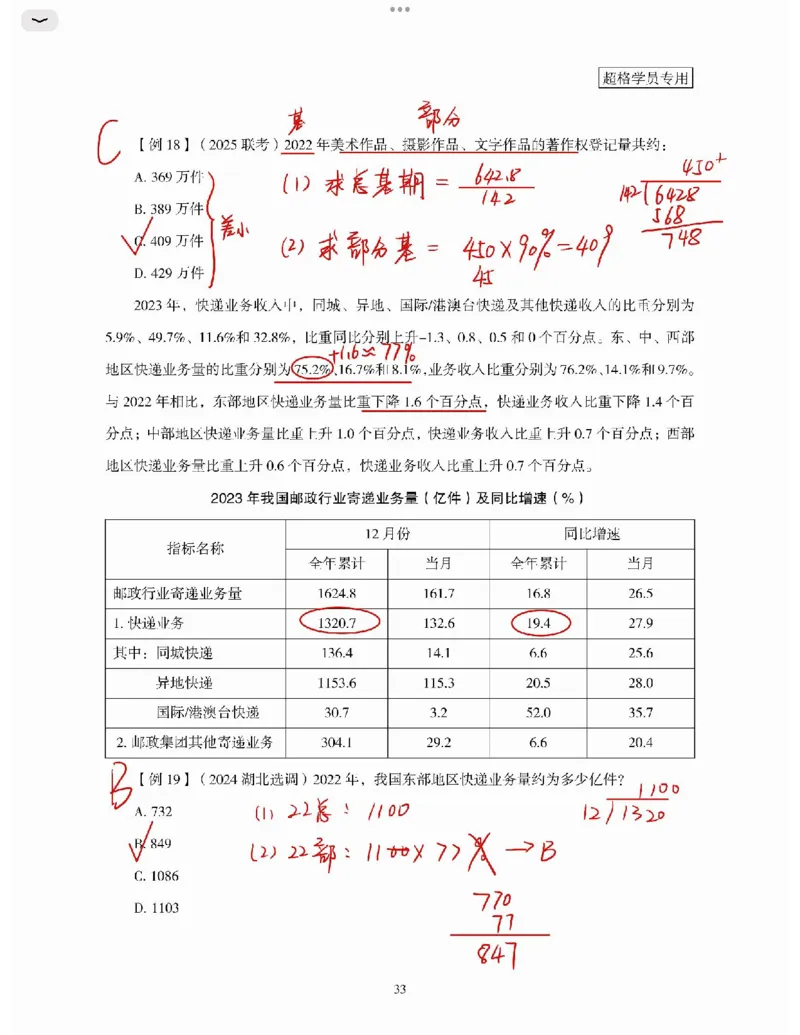 超格学员专用
基 部分
C
【例 18】（2025 联考）2022 年美术作品、摄影作品、文字作品的著作权登记量共约：
A. 369 万件
B. 389 万件
C. 409 万件
D. 429 万件
差小
(1) 求总基期 = 642.8/142
(2) 求部分基 = 450×90%=40
45
450+
142 6428
568
748
2023 年，快递业务收入中，同城、异地、国际/港澳台快递及其他快递收入的比重分别为
5.9%、49.7%、11.6%和 32.8%，比重同比分别上升-1.3、0.8、0.5 和 0 个百分点。东、中、西部
+1.6≈77%
地区快递业务量的比重分别为 75.2%、16.7%和 8.1%，业务收入比重分别为 76.2%、14.1%和 9.7%。
与 2022 年相比，东部地区快递业务量比重下降 1.6 个百分点，快递业务收入比重下降 1.4 个百
分点；中部地区快递业务量比重上升 1.0 个百分点，快递业务收入比重上升 0.7 个百分点；西部
地区快递业务量比重上升 0.6 个百分点，快递业务收入比重上升 0.7 个百分点。
2023 年我国邮政行业寄递业务量（亿件）及同比增速（%）
指标名称 12 月份 同比增速
全年累计 当月 全年累计 当月
邮政行业寄递业务量 1624.8 161.7 16.8 26.5
1. 快递业务 1320.7 132.6 19.4 27.9
其中：同城快递 136.4 14.1 6.6 25.6
异地快递 1153.6 115.3 20.5 28.0
国际/港澳台快递 30.7 3.2 52.0 35.7
2. 邮政集团其他寄递业务 304.1 29.2 6.6 20.4
B
【例 19】（2024 湖北选调）2022 年，我国东部地区快递业务量约为多少亿件？
A. 732
B. 849
C. 1086
D. 1103
(1) 22总：1100
(2) 22部：1100×77% → B
1100
12 1320
770
77
847
33